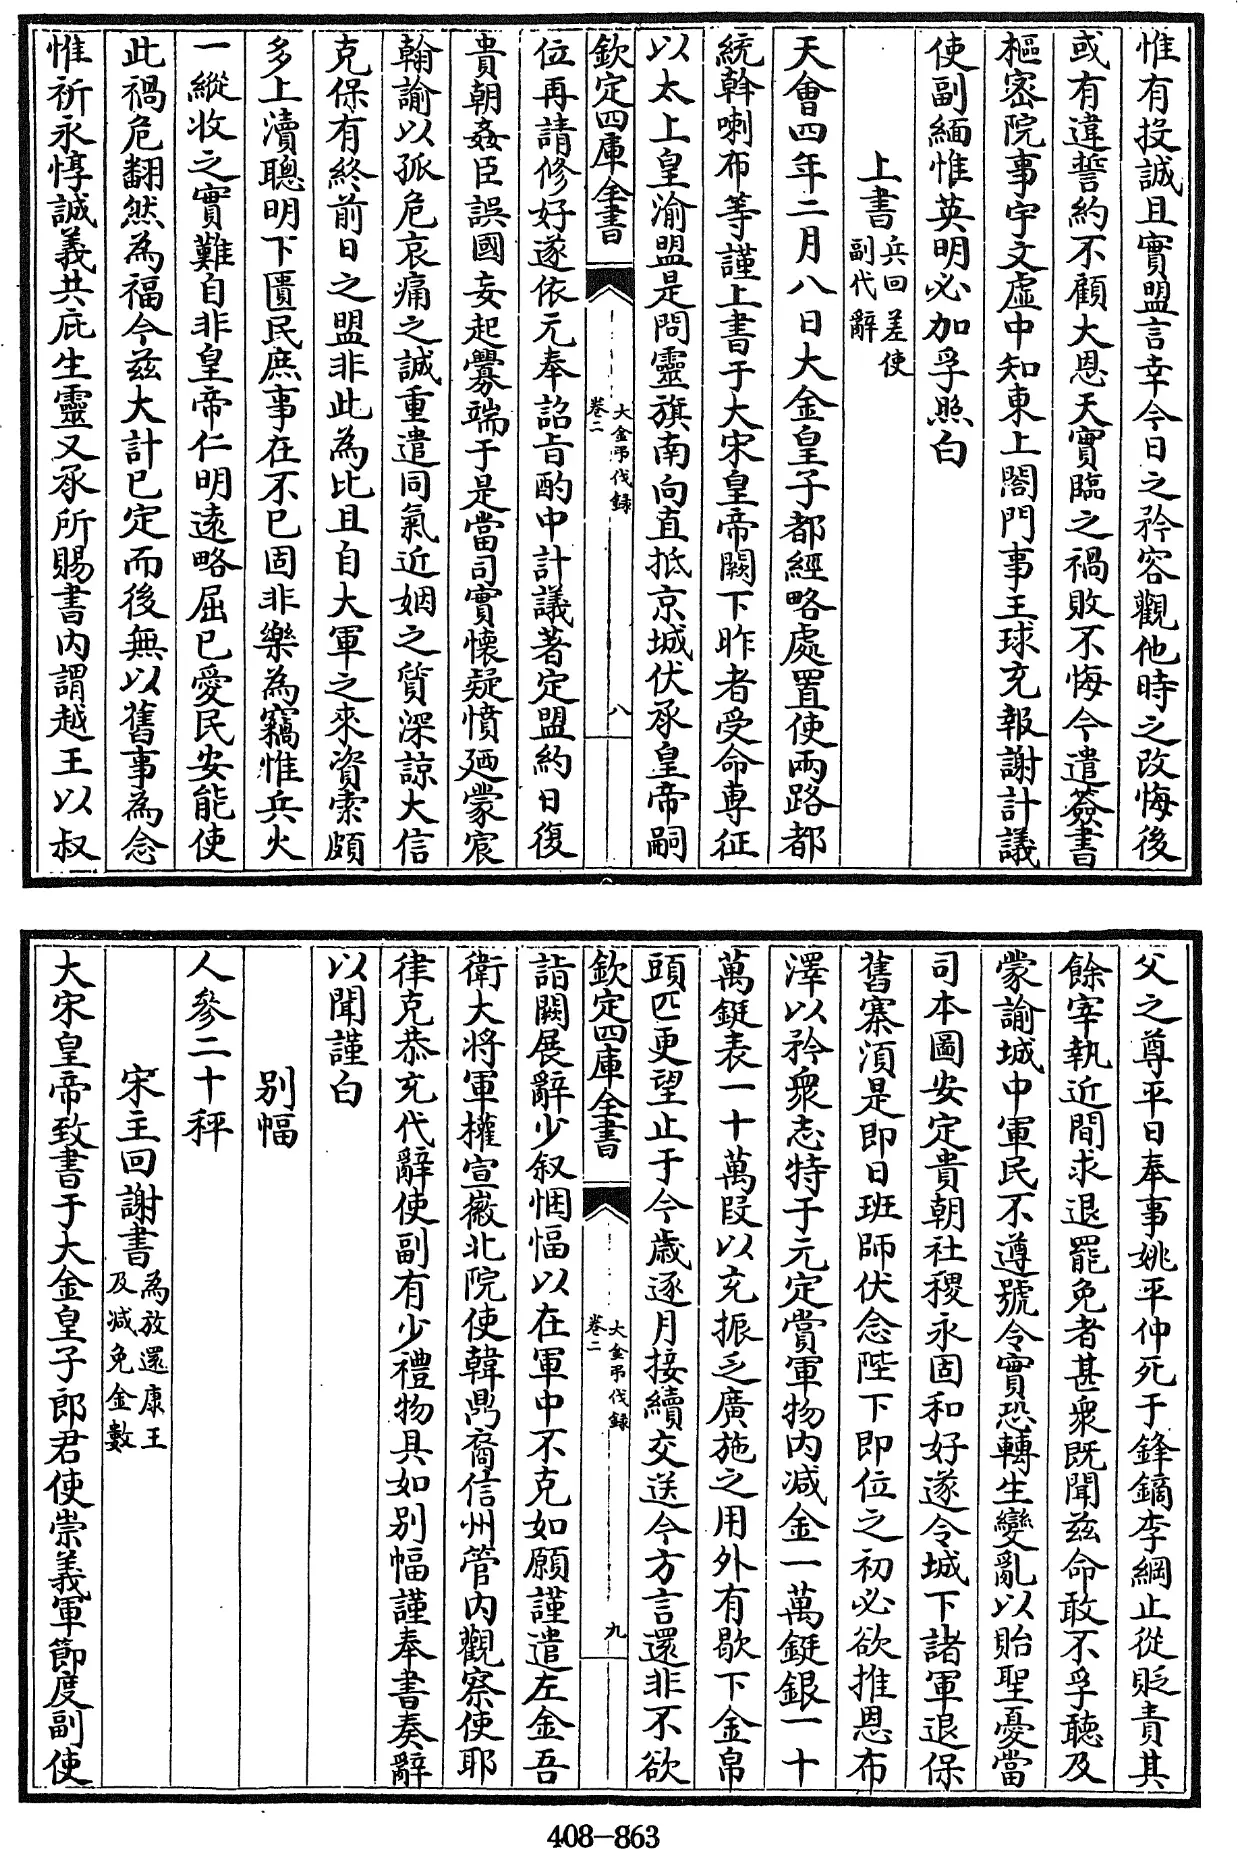 惟有投誠且實盟言幸今日之矜容觀他時之改悔後
或有違誓約不顧大恩天實臨之禍敗不悔今遣簽書
樞密院事宇文虛中知東上閤門事王球充報謝計議
使副緬惟英明必加孚照白
上書兵回差使副代辭
天會四年二月八日大金皇子都經略處置使兩路都
統斡喇布等謹上書于大宋皇帝闕下昨者受命專征
以太上皇渝盟是問靈旗南向直抵京城伏承皇帝嗣
欽定四庫全書 大金弔伐録 卷二 八
位再請修好遂依元奉詔旨酌中計議著定盟約日復
貴朝姦臣誤國妄起釁端于是當司實懷疑憤廼蒙宸
翰諭以孤危哀痛之誠重遣同氣近姻之質深諒大信
克保有終前日之盟非此為比且自大軍之來資索頗
多上瀆聰明下匱民庶事在不已固非樂為竊惟兵火
一縱收之實難自非皇帝仁明遠略屈已愛民安能使
此禍危翻然為福今兹大計已定而後無以舊事為念
惟祈永惇誠義共庇生靈又承所賜書内謂越王以叔
父之尊平日奉事姚平仲死于鋒鏑李綱止從貶責其
餘宰執近間求退罷免者甚衆既聞兹命敢不孚聽及
蒙諭城中軍民不遵號令實恐轉生變亂以貽聖憂當
司本圖安定貴朝社稷永固和好遂令城下諸軍退保
舊寨湏是即日班師伏念陛下即位之初必欲推恩布
澤以矜衆志特于元定賞軍物内减金一萬鋌銀一十
萬鋌表一十萬段以充振乏廣施之用外有歇下金帛
頭匹更望止于今歲逐月接續交送今方言還非不欲
欽定四庫全書 大金弔伐録 卷二 九
詣闕展辭少叙悃愊以在軍中不克如願謹遣左金吾
衛大将軍權宣徽北院使韓鼎裔信州管内觀察使耶
律克恭充代辭使副有少禮物具如别幅謹奉書奏辭
以聞謹白
别幅
人參二十秤
宋主回謝書為放還康王及减免金數
大宋皇帝致書于大金皇子郎君使崇義軍節度副使
408—863